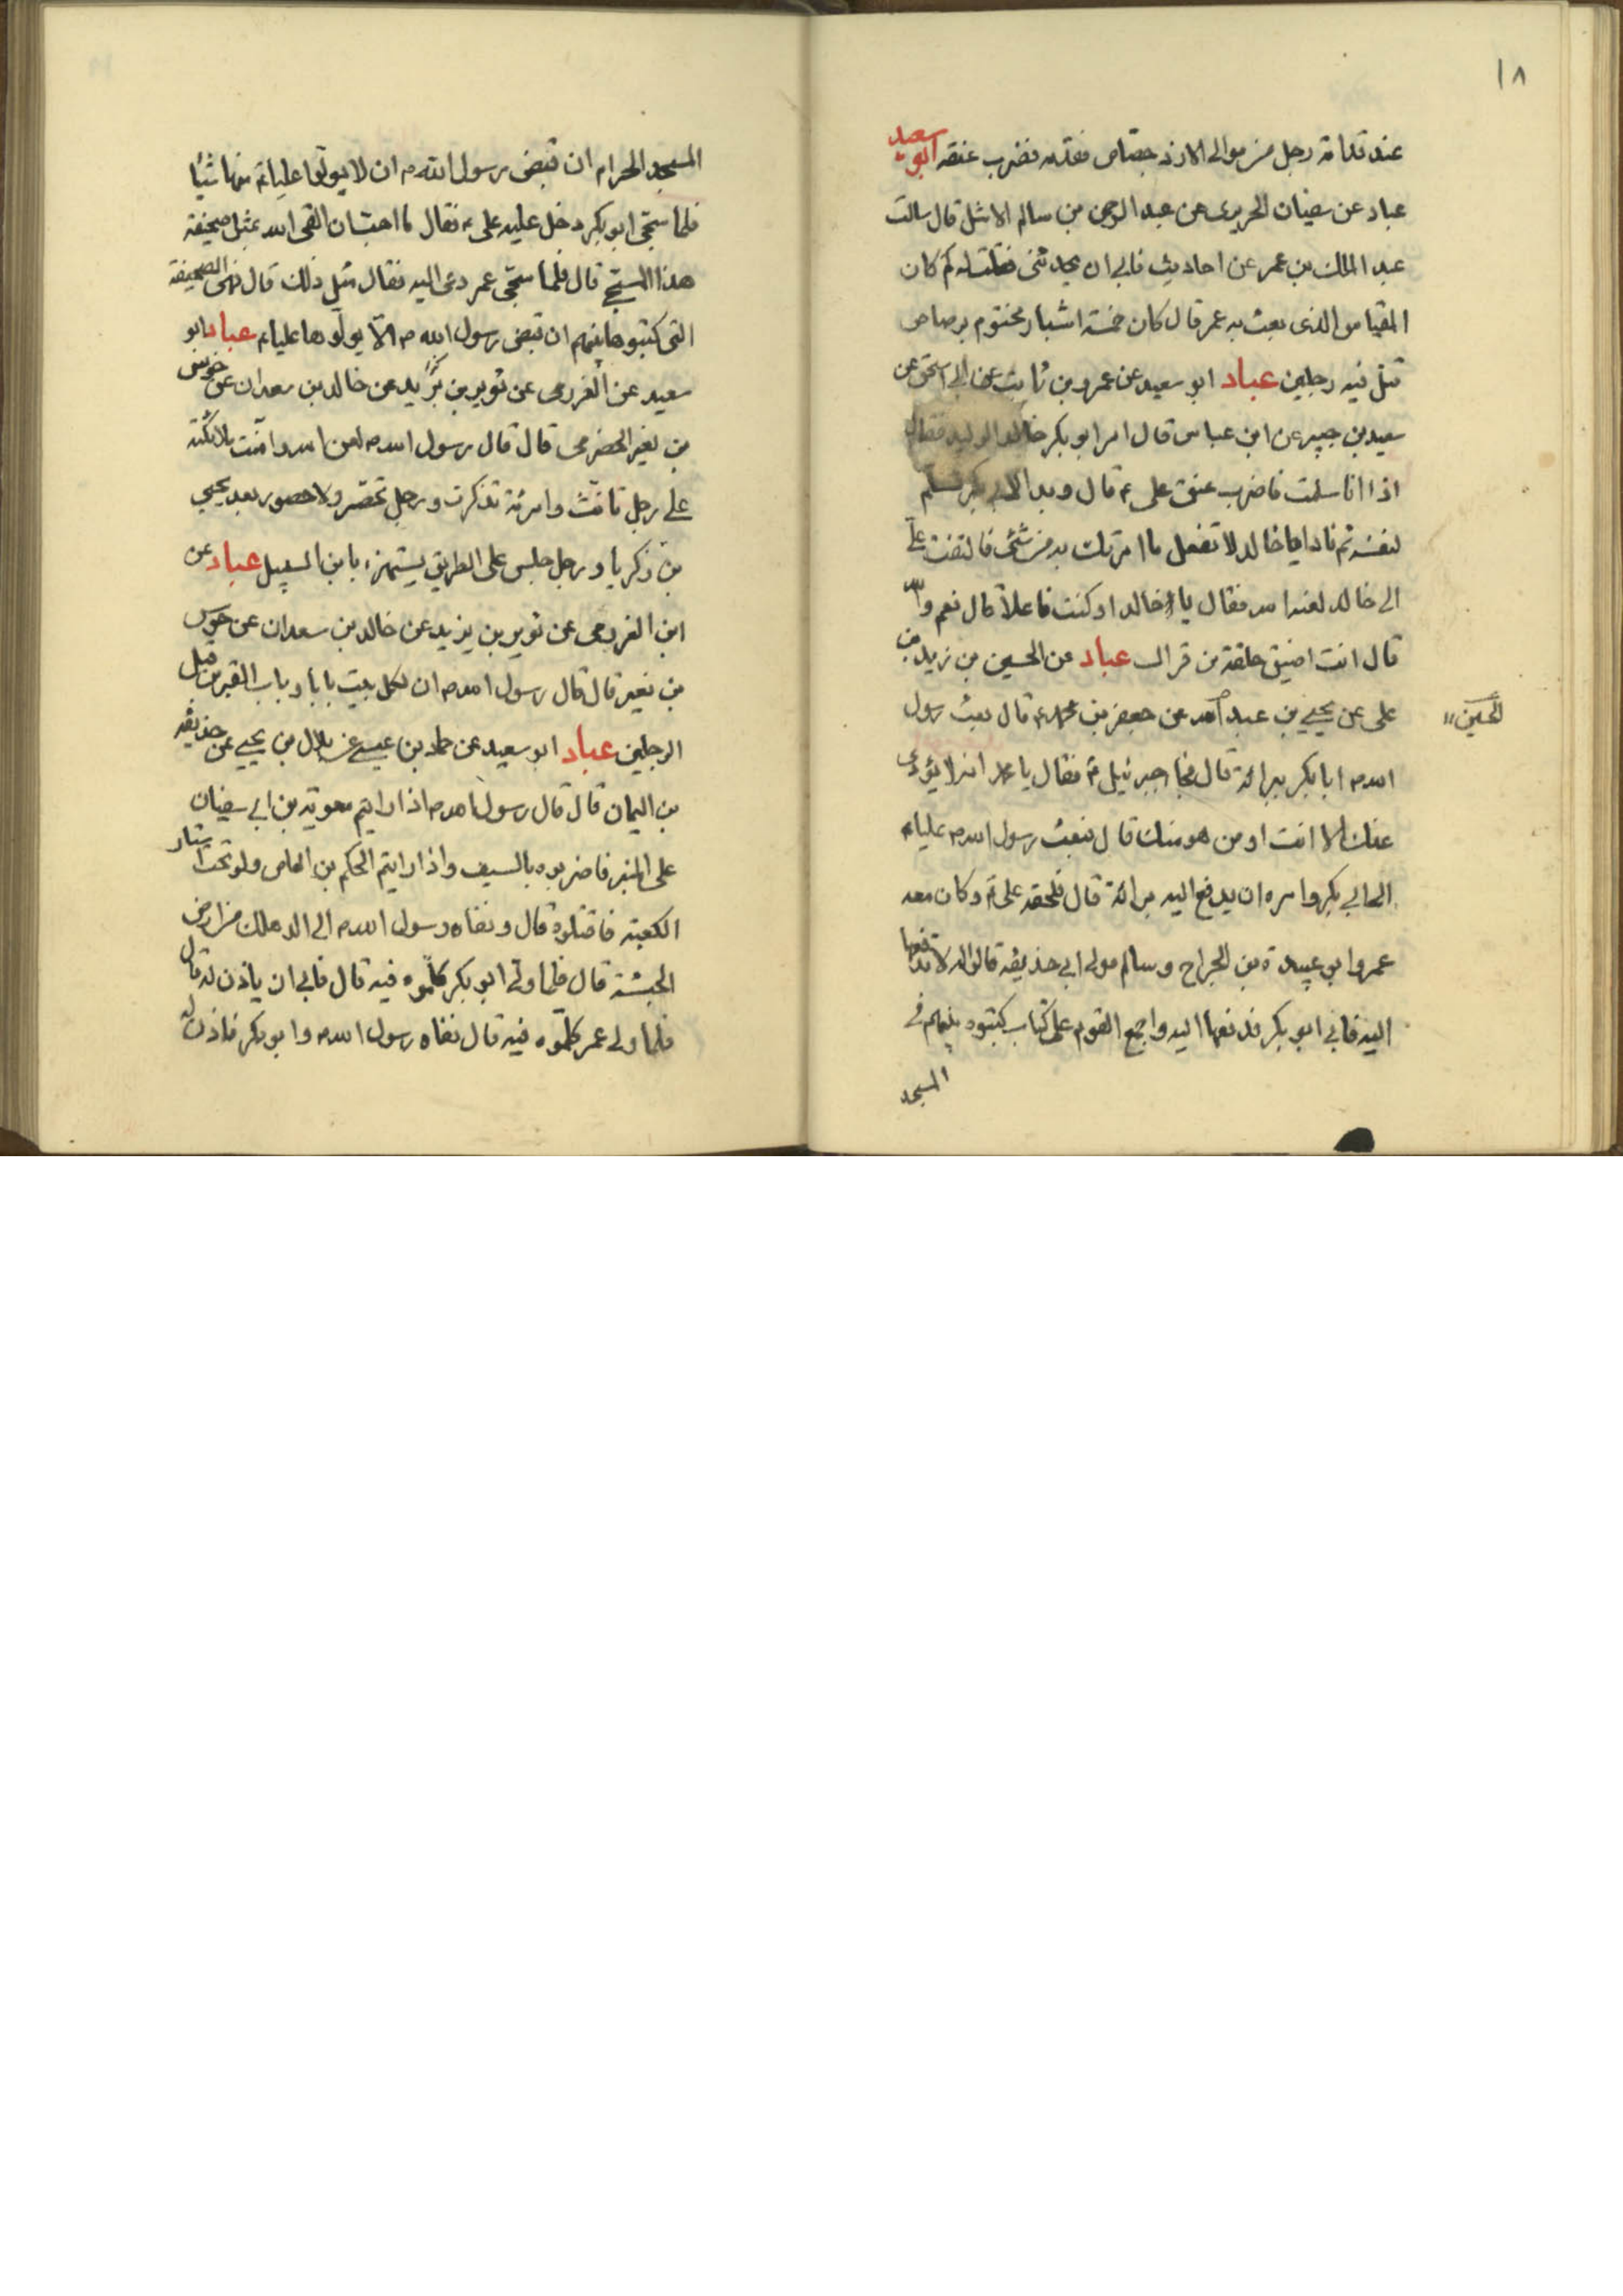 ١٨
عند قدامة رجل من موالى الازد جصّاص فقدمه فضرب عنقه ابو سعيد
عباد عن سفيان الحريرى عن عبد الرحمن بن سالم الاشل قال سالت
عبد الملك بن عمر عن احاديث فابى ان يحدثنى فقلت له كم كان
المقياس الذى بعث به عمر قال كان خمسة اشبار مختوم برصاص
قتل فيه رجلين عباد ابو سعيد عن عمرو بن ثابت عن ابى اسحق عن
سعيد بن جبير عن ابن عباس قال امر ابو بكر خالد الوليد فقال
اذا انا سلمت فاضرب عنق على ع قال وبدا لابى بكر فسلم
لنفسه ثم نادا يا خالد لا تفعل ما امرتك به من شئ فالتفت على
الى خالد لعنه الله فقال يا خالد او كنت فاعلا قال نعم والله
قال انت اضيق حلقة من عباد عن الحسين بن زيد بن
على عن يحيى بن عبد الله عن جعفر بن محمد ع قال بعث رسول
الحسين
الله ص ابا بكر ببرائة قال فجا جبرئيل ع فقال يا محمد انه لا يؤدى
عنك الا انت او من هو منك قال فبعث رسول الله ص عليا ع
الى ابى بكر وامره ان يدفع اليه برائة قال فلحقه على ع وكان معه
عمر وابو عبيدة بن الجراح وسالم مولى ابى حذيفة قالوا له لا تدفعها
اليه فابى ابو بكر فدفعها اليه واجمع القوم على كتاب كتبوه بينهم فى
المسجد
المسجد الحرام ان قبض رسول الله ص ان لا يولوا عليا ع منها شيئا
فلما سجى ابو بكر دخل عليه على ع فقال ما احب ان القى الله بمثل صحيفة
هذا المسجى قال فلما سجى عمر دعى اليه فقال مثل ذلك قال فهى الصحيفة
التى كتبوها بينهم ان قبض رسول الله ص الا يولوها عليا ع عباد ابو
سعيد عن العزرمى عن ثوير بن يزيد عن خالد بن معدان عن
بن نفير الحضرمى قال قال رسول الله ص لعن الله وامنت الملائكة
على رجل تانث وامرئة تذكرت ورجل تحصر ولا حصور بعد يحيى
بن زكريا ورجل جلس على الطريق يستهزء بابن السبيل عباد عن
ابن العزرمى عن ثوير بن يزيد عن خالد بن معدان عن
بن نفير قال قال رسول الله ص ان لكل بيت بابا وباب القبر من قبل
الرجلين عباد ابو سعيد عن حماد بن عيسى عن بلال بن يحيى عن حذيفة
بن اليمان قال قال رسول الله ص اذا رايتم معوية بن ابى سفيان
على المنبر فاضربوه بالسيف واذا رايتم الحكم بن العاص ولو تحت استار
الكعبة فاقتلوه قال ونفاه رسول الله ص الى الدهلك من ارض
الحبشة قال فلما ولى ابو بكر كلموه فيه قال فابى ان ياذن له قال
فلما ولى عمر كلموه فيه قال نفاه رسول الله ص وابو بكر فاذن له